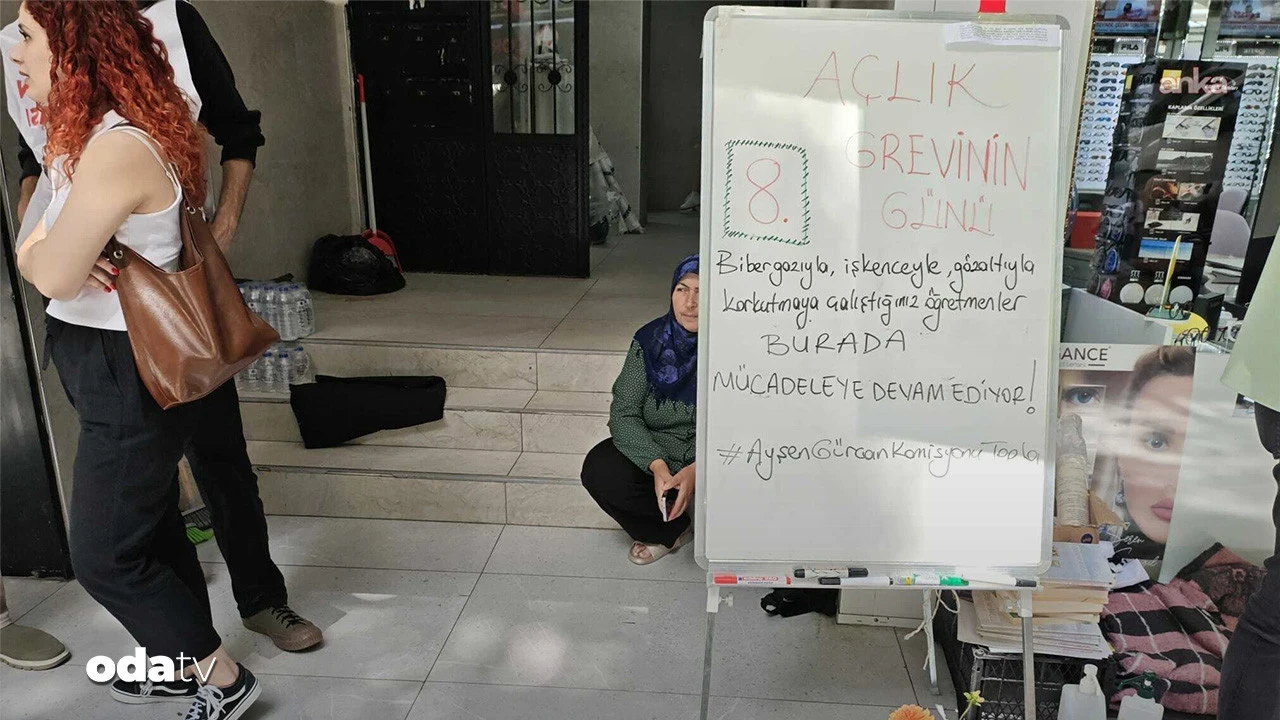 AÇLIK
8. GREVİNİN
GÜNÜ
Bibergazıyla, işkenceyle, gözaltıyla
korkutmaya çalıştığınız öğretmenler
BURADA
MÜCADELEYE DEVAM EDİYOR!
#AyşenGürcanKomisyonuTopla
anka
FILA
KAPLAMA ÖZELLİKLERİ
GANCE
odatv